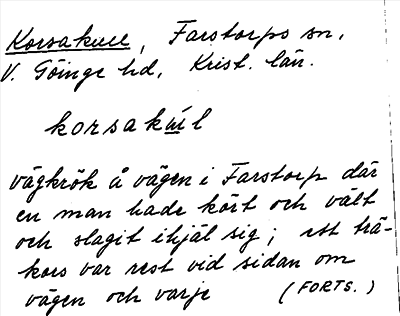 Korsakull, Farstorps sn,
V. Göinge hd, Krist. län.
korsakúl
Vägkrök å vägen i Farstorp där
en man hade kört och vält
och slagit ihjäl sig; ett trä-
kors var rest vid sidan om
vägen och varje (FORTS.)